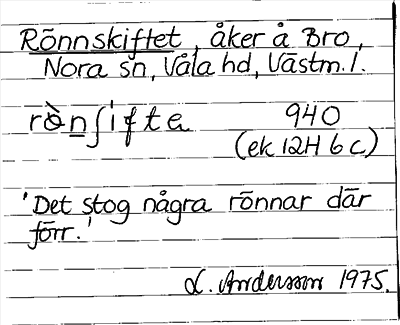 Rönnskiftet, åker å Bro,
Nora sn, Våla hd, Västm. l.
rò̀nʃifta 940
(ek 12H 6c)
'Det stog några rönnar där
förr.'
L. Andersson 1975.